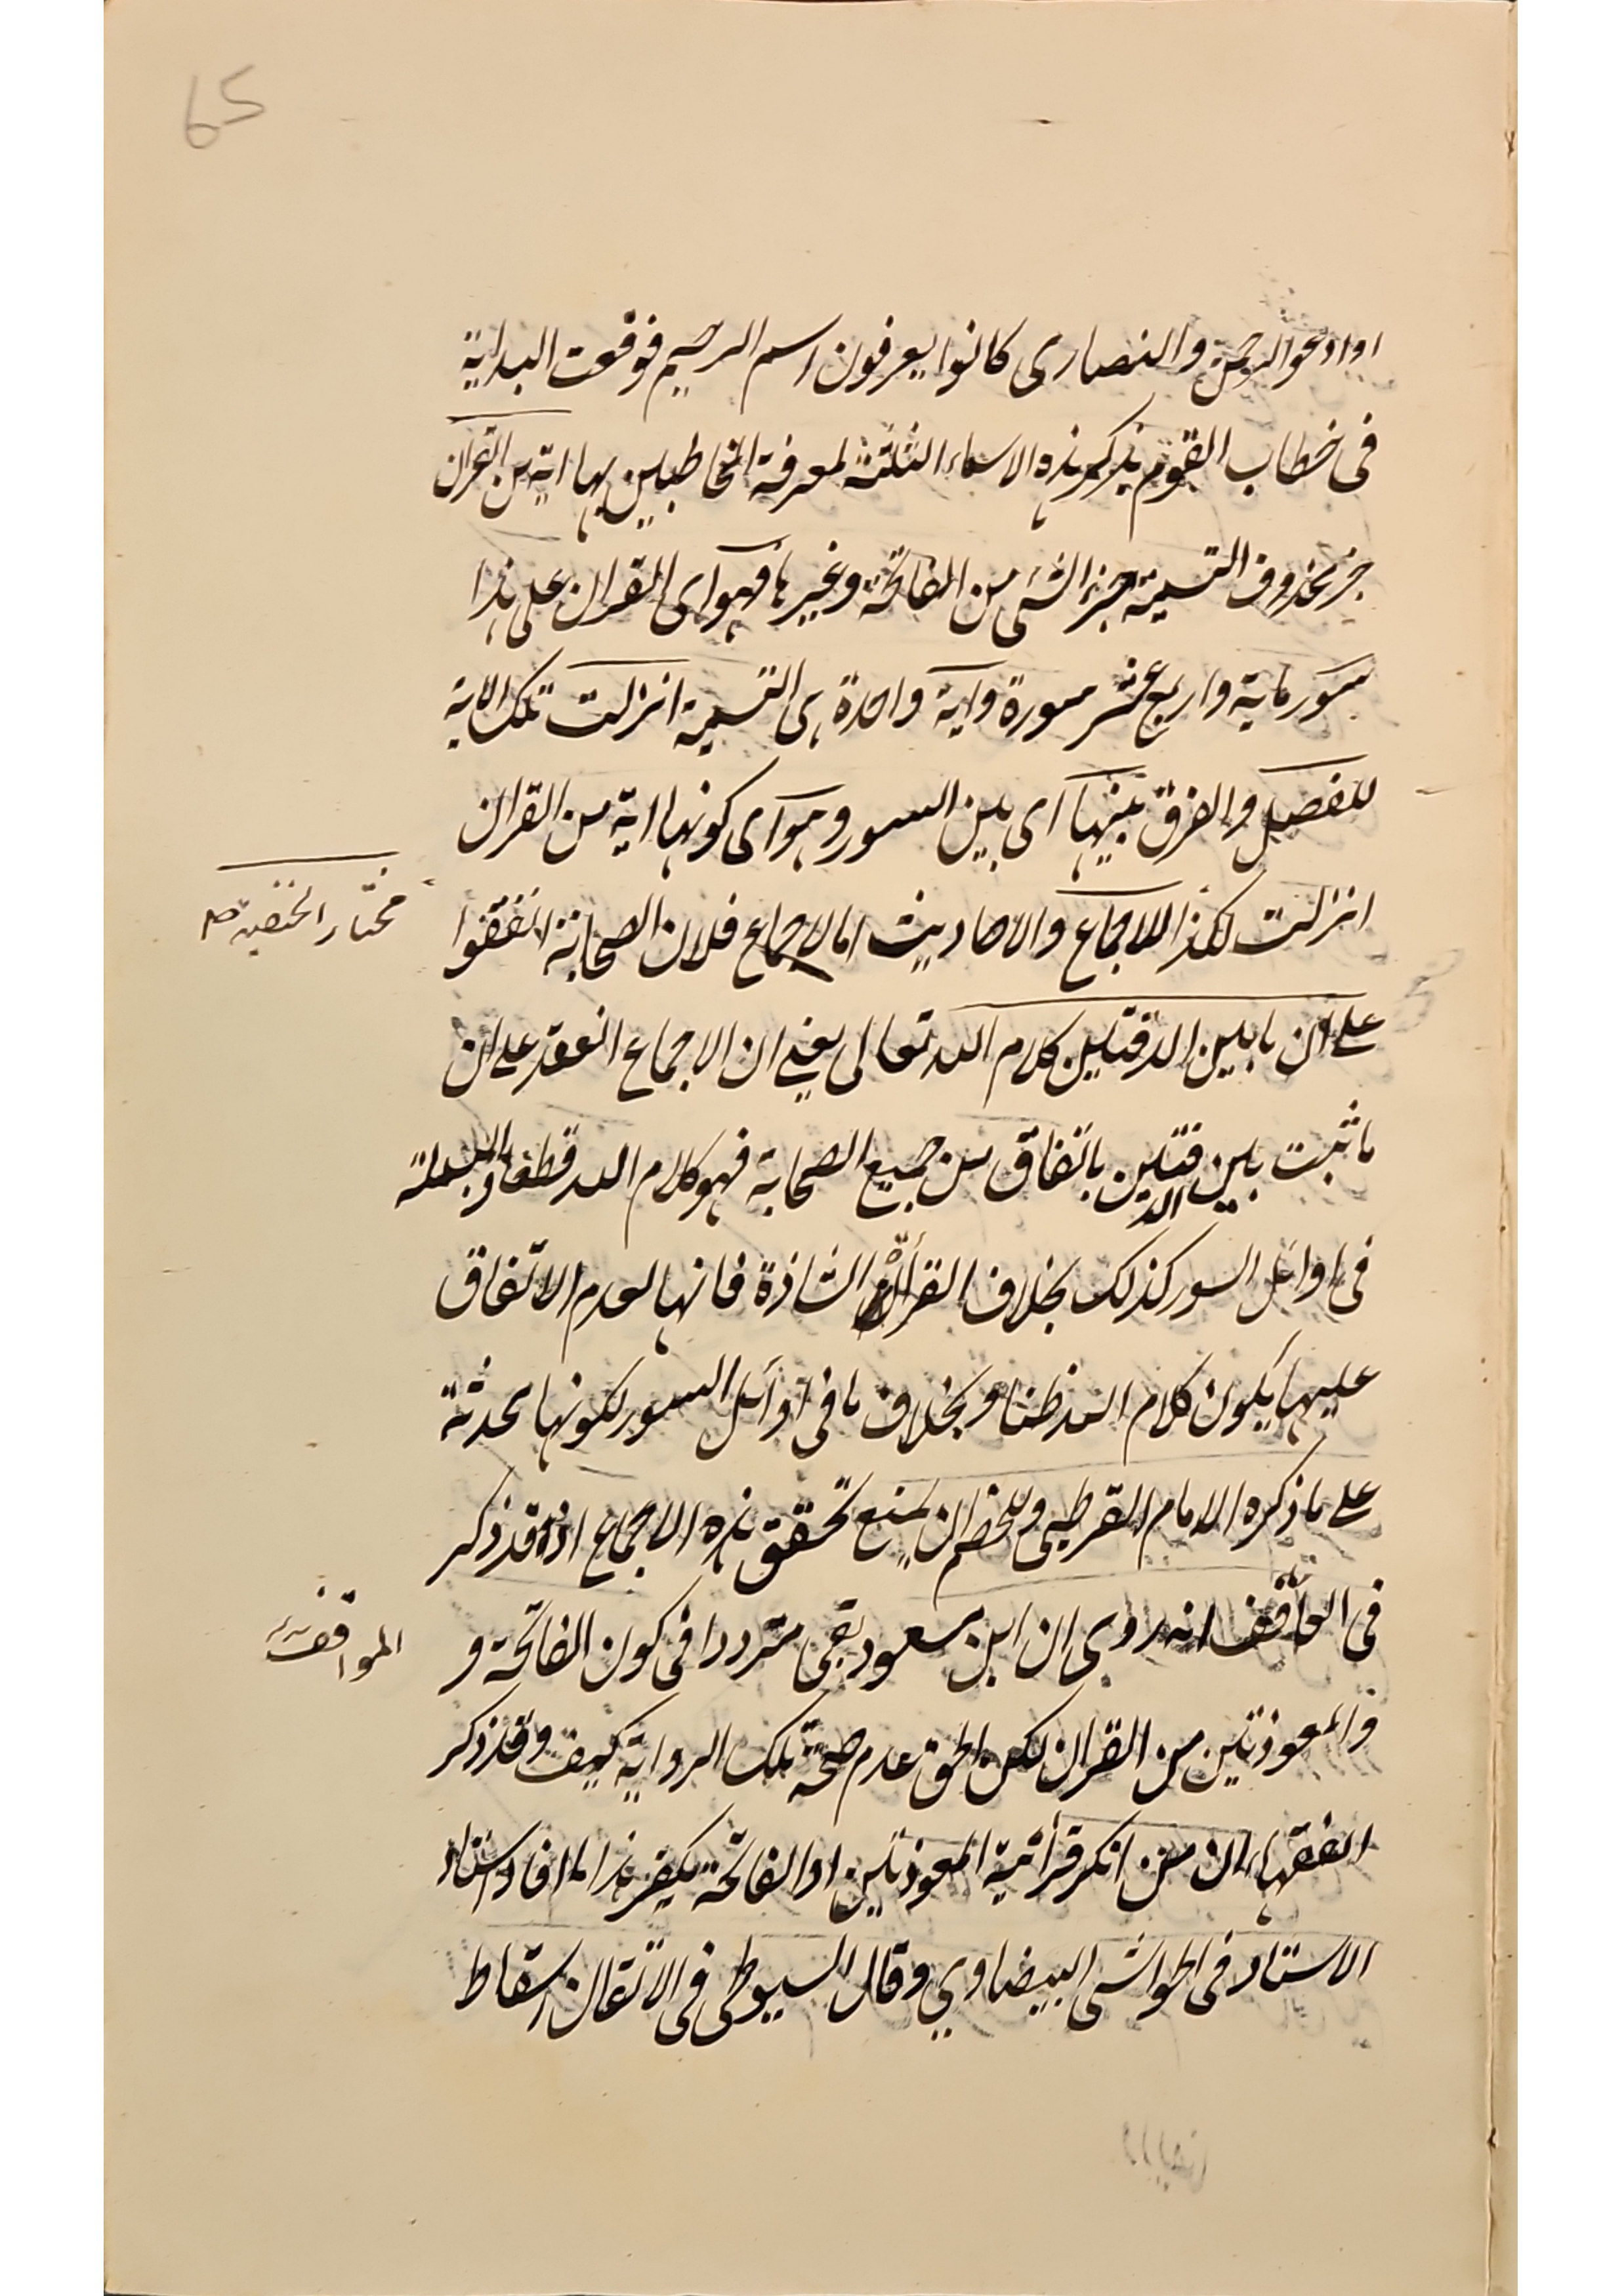 65
او ادعوا الرحمن والنصارى كانوا يعرفون اسم الرحيم فوقعت البداية
فى خطاب القوم بذكر هذه الاسماء الثلثة لمعرفة المخاطبين بها اية من القران
خبر محذوف التسمية جزء الشئ من الفاتحة وغيرها فهو اى القران على هذا
سور ماية واربع عشر سورة واية واحدة هى التسمية انزلت تلك الاية
للفصل والفرق بينها اى بين السور وهو اى كونها اية من القران
مختار الحنفية صح
انزلت لكذا للاجماع والاحاديث اما الاجماع فلان الصحابة اتفقوا
على ان ما بين الدفتين كلام الله تعالى يعنى ان الاجماع انعقد على ان
ما ثبت بين الدفتين باتفاق من جميع الصحابة فهو كلام الله قطعا والبسملة
فى اوائل السور كذلك بخلاف القراة الشاذة فانها لعدم الاتفاق
عليها يكون كلام الله ظنا وبخلاف ما فى اوائل السور لكونها محدثة
على ما ذكره الامام القرطبى وللخصم ان يمنع تحقق هذه الاجماع اذ قد ذكر
المواقف
فى انه روى ان ابن مسعود بقى مترددا فى كون الفاتحة و
والمعوذتين من القران لكن الحق عدم صحة تلك الرواية كيف وقد ذكر
الفقهاء ان من انكر قرأنية المعوذتين او الفاتحة يكفر هذا ما افاد استاد
الاستاد فى الحواشى البيضاوي وقال السيوطى فى الاتقان اسقاط